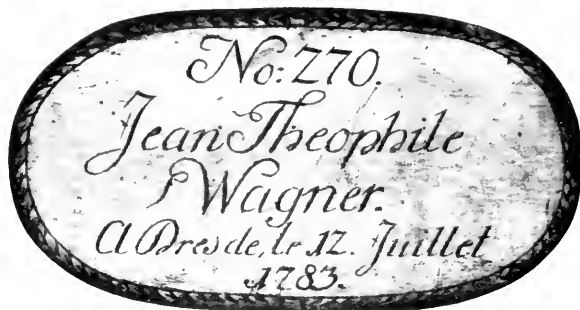 No: 270.
Jean Theophile
Wagner.
A Dresde, le 12. Juillet
1783.